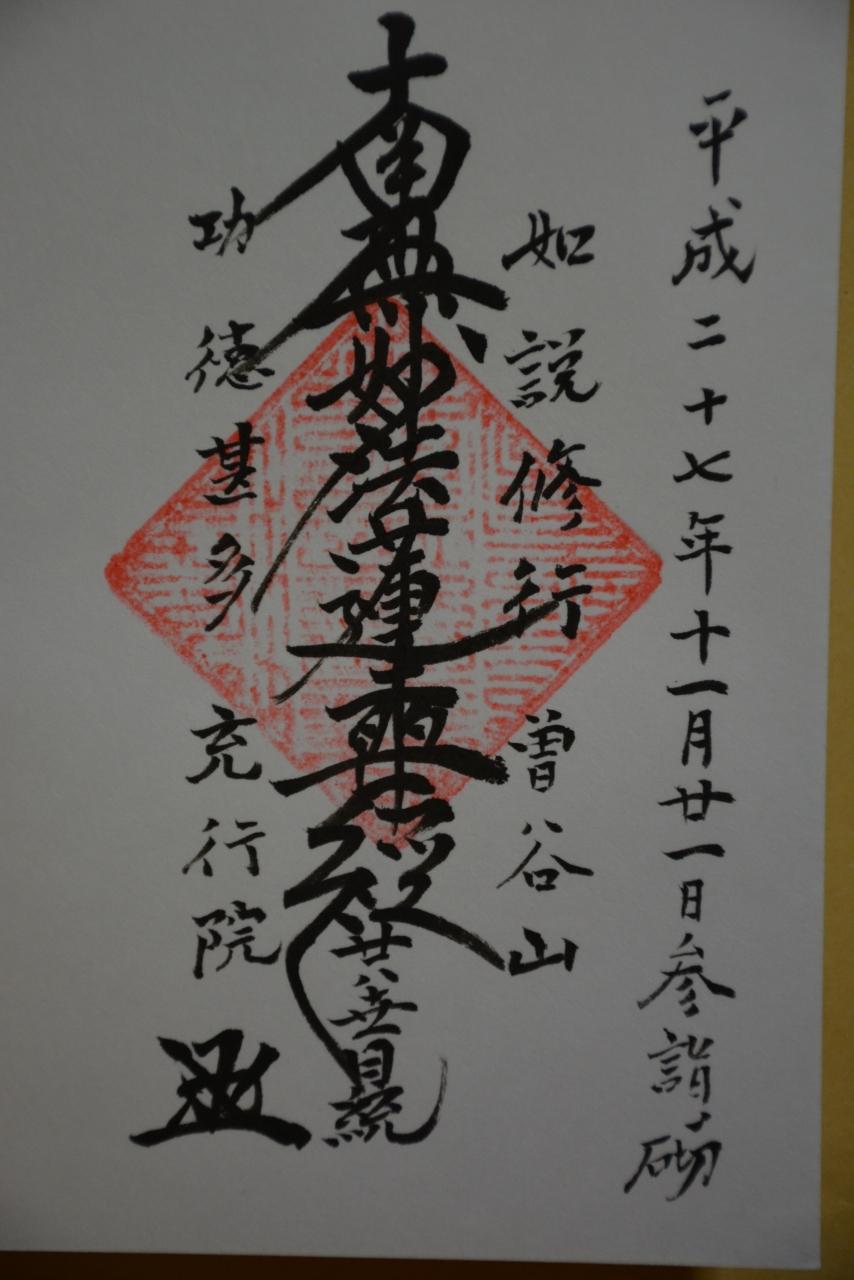 平成二十七年十一月廿一日参詣ノ砌
如説修行 曽谷山
南無妙法蓮華経
廿八世日統
功徳甚多 充行院